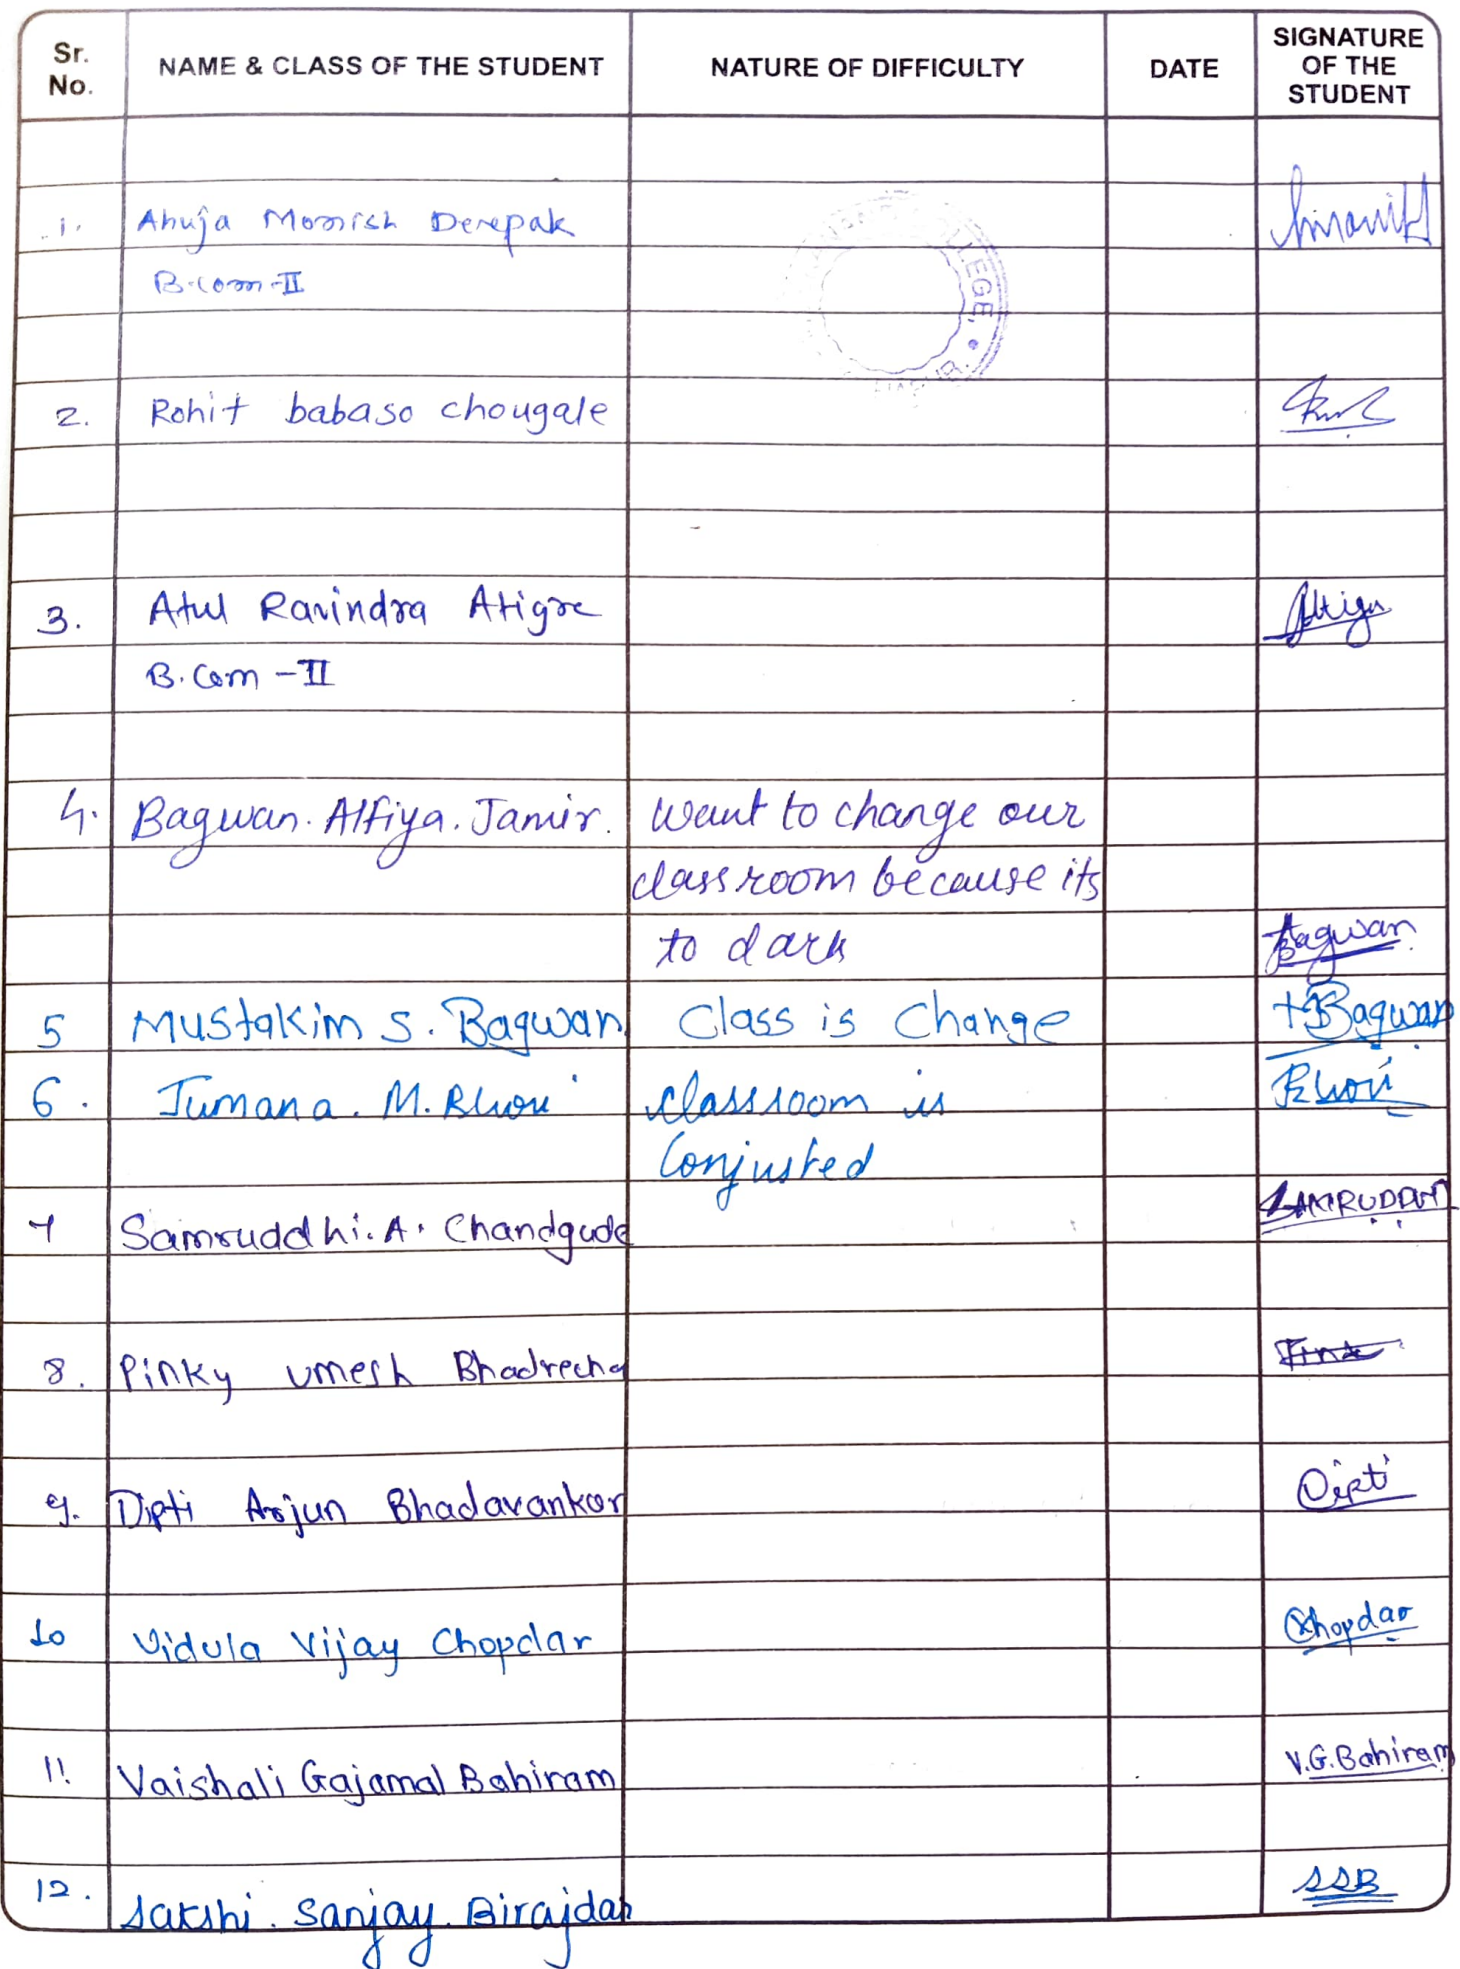 Sr. No. NAME & CLASS OF THE STUDENT NATURE OF DIFFICULTY DATE SIGNATURE OF THE STUDENT
1. Ahuja Monish Deepak
B.com-II
COLLEGE
2. Rohit babaso chougale
3. Atul Ravindra Atigre Atigre
B.Com -II
4. Bagwan. Alfiya. Jamir. want to change our
classroom because its
to dark Bagwan
5 Mustakim S. Bagwan Class is Change Bagwan
6. Jumana. M. Bhori classroom is Bhori
Conjusted
7 Samruddhi. A. Chandgude
8. Pinky Umesh Bhadrecha
9. Dipti Arjun Bhadavankar Dipti
10 Vidula Vijay Chopdar Chopdar
11. Vaishali Gajamal Bahiram V.G.Bahiram
12. Sakshi. Sanjay. Birajdar SSB